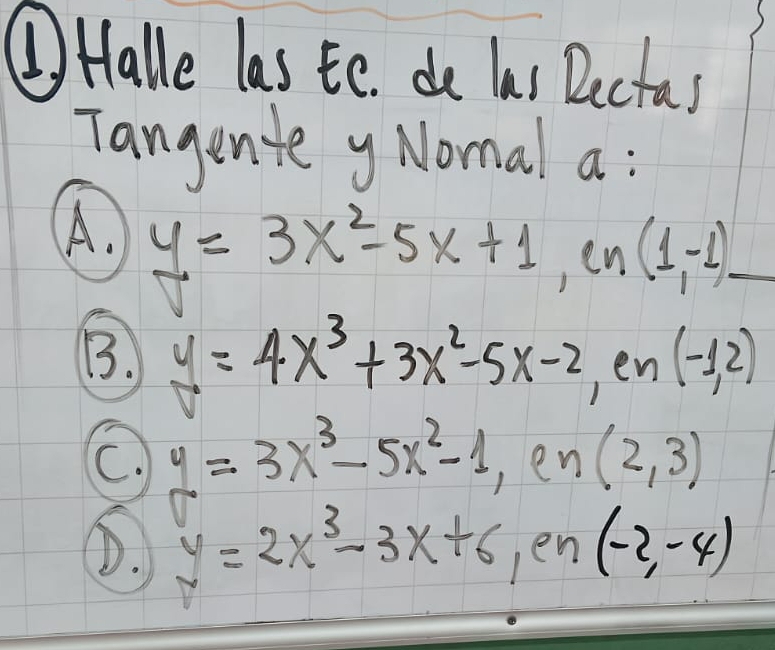 ① Halle las Ec. de las Rectas
Tangente y Normal a:
A. y = 3x²-5x+1, en (1,-1)
B. y = 4x³+3x²-5x-2, en (-1,2)
C. y = 3x³-5x²-1, en (2,3)
D. y = 2x³-3x+6, en (-2,-4)